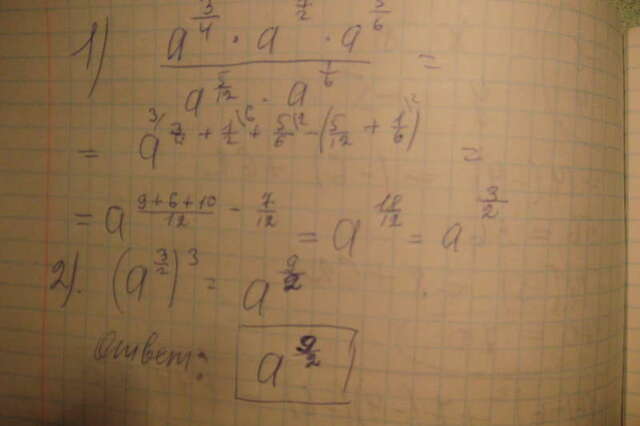 1) (a^(3/4) · a^(1/2) · a^(5/6)) / (a^(5/12) · a^(1/6)) =
= a^(3/4 + 1/2 + 5/6 - (5/12 + 1/6)) =
= a^((9+6+10)/12 - 7/12) = a^(18/12) = a^(3/2)
2). (a^(3/2))^3 = a^(9/2)
Ответ: a^(9/2)